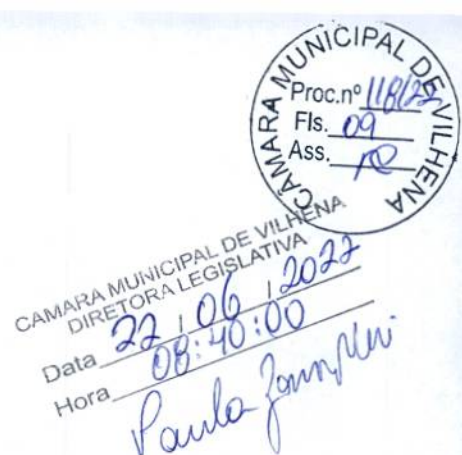 CÂMARA MUNICIPAL DE VILHENA
Proc.nº 118/22
Fls. 09
Ass.
CAMARA MUNICIPAL DE VILHENA
DIRETORA LEGISLATIVA
Data 22 / 06 / 2022
Hora 08:40:00
Paula